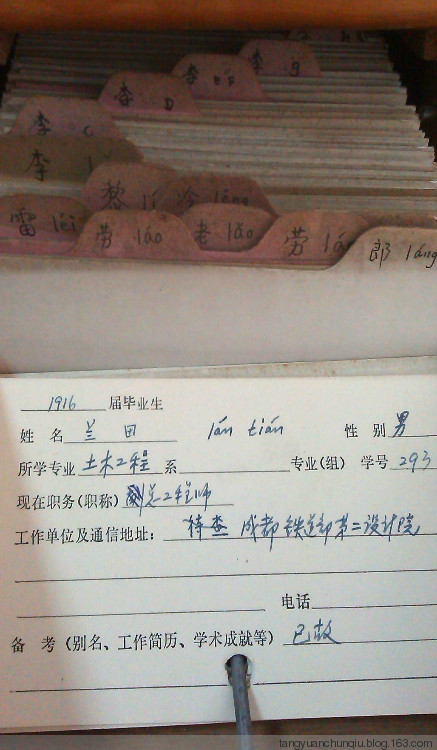 李 g
李 ef
李 D
李 c
李
黎 lí
冷 lěng
雷 léi
劳 láo
老 lǎo
劳 lá
郎 láng
1916 届毕业生
姓 名 兰田 lán tián 性 别 男
所学专业 土木工程 系 专业(组) 学号 293
现在职务(职称) 副总工程师
工作单位及通信地址: 待查 成都铁道部第二设计院
电话
备 考 (别名、工作简历、学术成就等) 已故
tangyuanchunqiu.blog.163.com